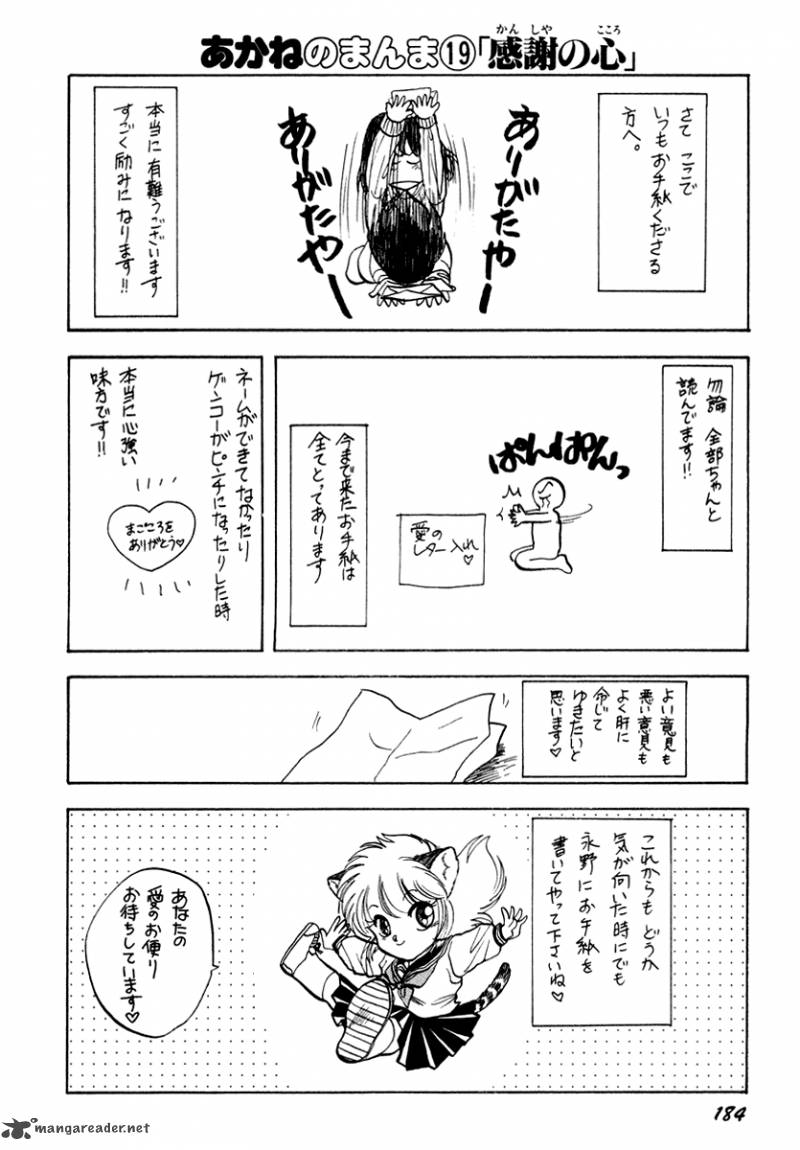 あかねのまんま⑲「感謝の心」
かんしゃ
こころ
さて ここで
いつもお手紙くださる
方へ。
ありがたやー
ありがたやー
本当に 有難うございます
すごく励みになります!!
勿論 全部ちゃんと
読んでます!!
ぱんぱんっ
愛の
レター入れ♡
今まで来たお手紙は
全てとってあります
ネームができてなかったり
ゲンコーがピンチになったりした時
本当に心強い
味方です!!
まごころを
ありがとう♡
よい意見も
悪い意見も
よく肝に
命じて
ゆきたいと
思います♡
これからも どうか
気が向いた時にでも
永野にお手紙を
書いてやって下さいね♡
あなたの
愛のお便り
お待ちしています♡
184
mangareader.net